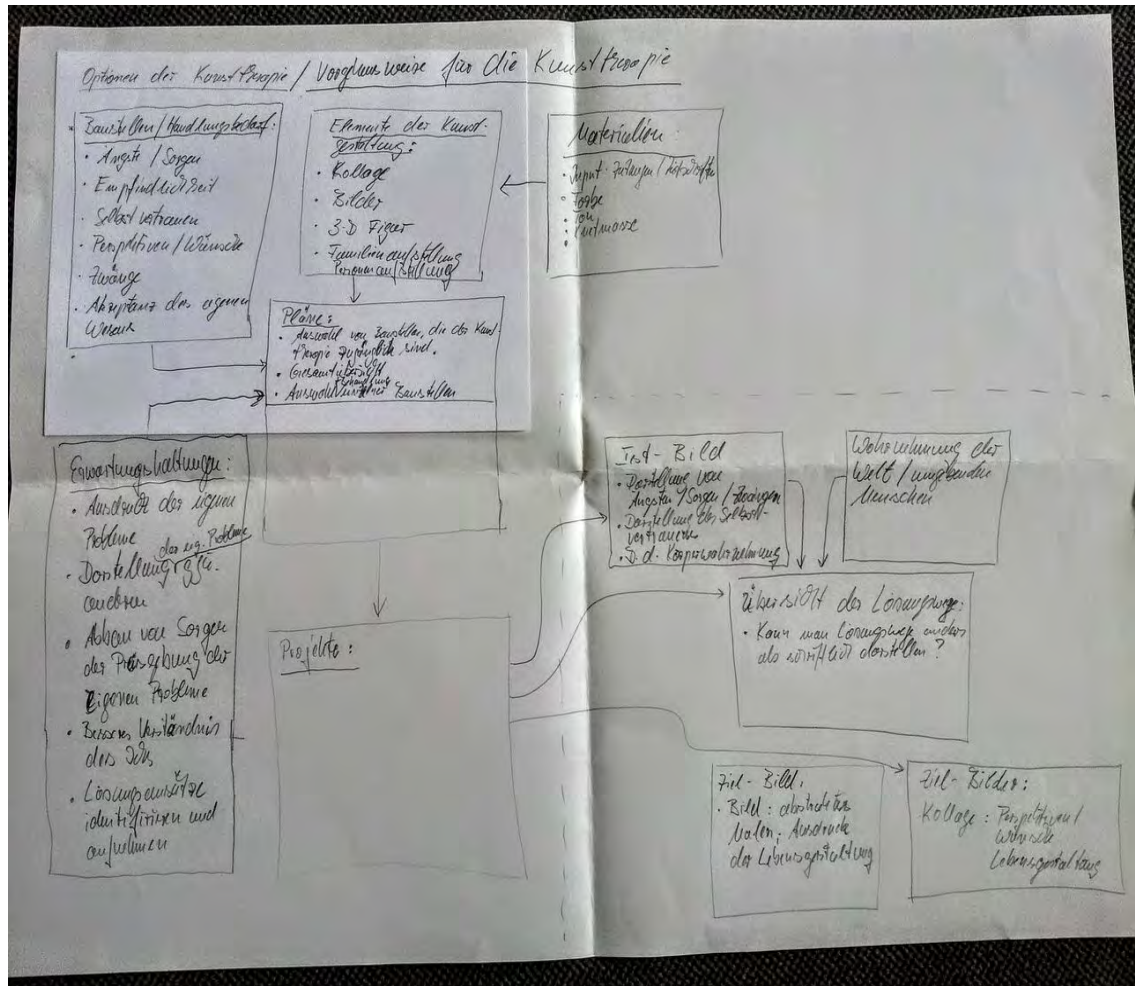 Optionen der Kunsttherapie / Vorgehensweise für die Kunsttherapie
Baustellen / Handlungsbedarf:
• Ängste / Sorgen
• Empfindlichkeit
• Selbstvertrauen
• Perspektiven / Wünsche
• Zwänge
• Akzeptanz des eigenen
Wesens
Elemente der Kunst-
gestaltung:
• Kollage
• Bilder
• 3-D Figur
• Familienaufstellung
Personenaufstellung
Materialien:
• Input: Zeitungen / Zeitschriften
• Farbe
• Ton
• Knetmasse
Pläne:
• Auswahl von Baustellen, die der Kunst-
therapie zugänglich sind.
• Gesamtübersicht
Behandlung
• Auswahl Baustellen
Erwartungshaltungen:
• Ausdruck der eigenen
Probleme
der eig. Probleme
• Darstellung ggü.
anderen
• Abbau von Sorgen
der Preisgebung der
eigenen Probleme
• Besseres Verständnis
des Ichs
• Lösungsansätze
identifizieren und
aufnehmen
Projekte:
Ist-Bild
• Darstellung von
Ängsten / Sorgen / Zwängen
• Darstellung des Selbst-
vertrauens
• D. d. Körperwahrnehmung
Wahrnehmung der
Welt / umgebenden
Menschen
Übersicht der Lösungswege:
• Kann man Lösungswege anders
als schriftlich darstellen?
Ziel-Bild:
• Bild: abstraktes
Malen; Ausdruck
der Lebensgestaltung
Ziel-Bilder:
Kollage: Perspektiven /
Wünsche
Lebensgestaltung